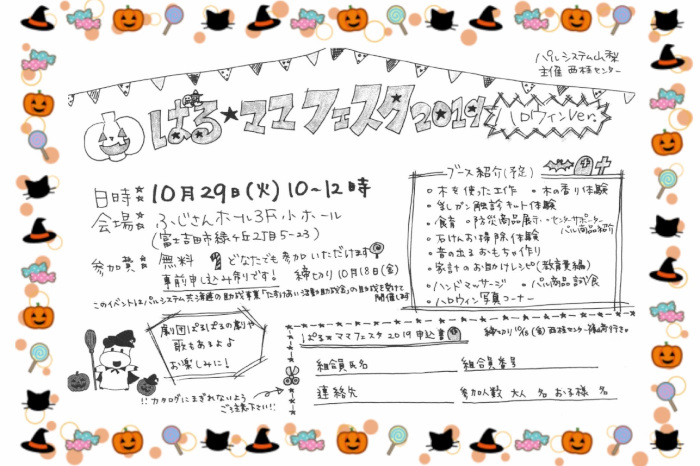 パルシステム山梨
主催 西桂センター
ぱる★ママフェスタ2019
ハロウィンVer.
日時 10月29日(火) 10~12時
会場 ふじさんホール3F小ホール
(富士吉田市緑ヶ丘2丁目5-23)
参加費 無料 どなたでも参加いただけます
事前申し込み有りです! 締切り10月18日(金)
このイベントはパルシステム共済連の助成事業「たすけあい活動助成金」の助成を受けて
開催します
ブース紹介(予定)
・木を使った工作 ・木の香り体験
・乳ガン触診キット体験
・食育 ・防災商品展示 ・センターサポーター
パル商品紹介
・石けんお掃除体験
・音の出るおもちゃ作り
・家計のお助けレシピ(教育費編)
・ハンドマッサージ ・パル商品試食
・ハロウィン写真コーナー
劇団ぱるぱるの劇や
歌もあるよ
お楽しみに!
!!カタログにまぎれないよう
ご注意下さい!!
ぱる★ママフェスタ2019申込書
締切り10/18(金)西桂センター
組合員氏名
組合員番号
連絡先
参加人数 大人 名 お子様 名